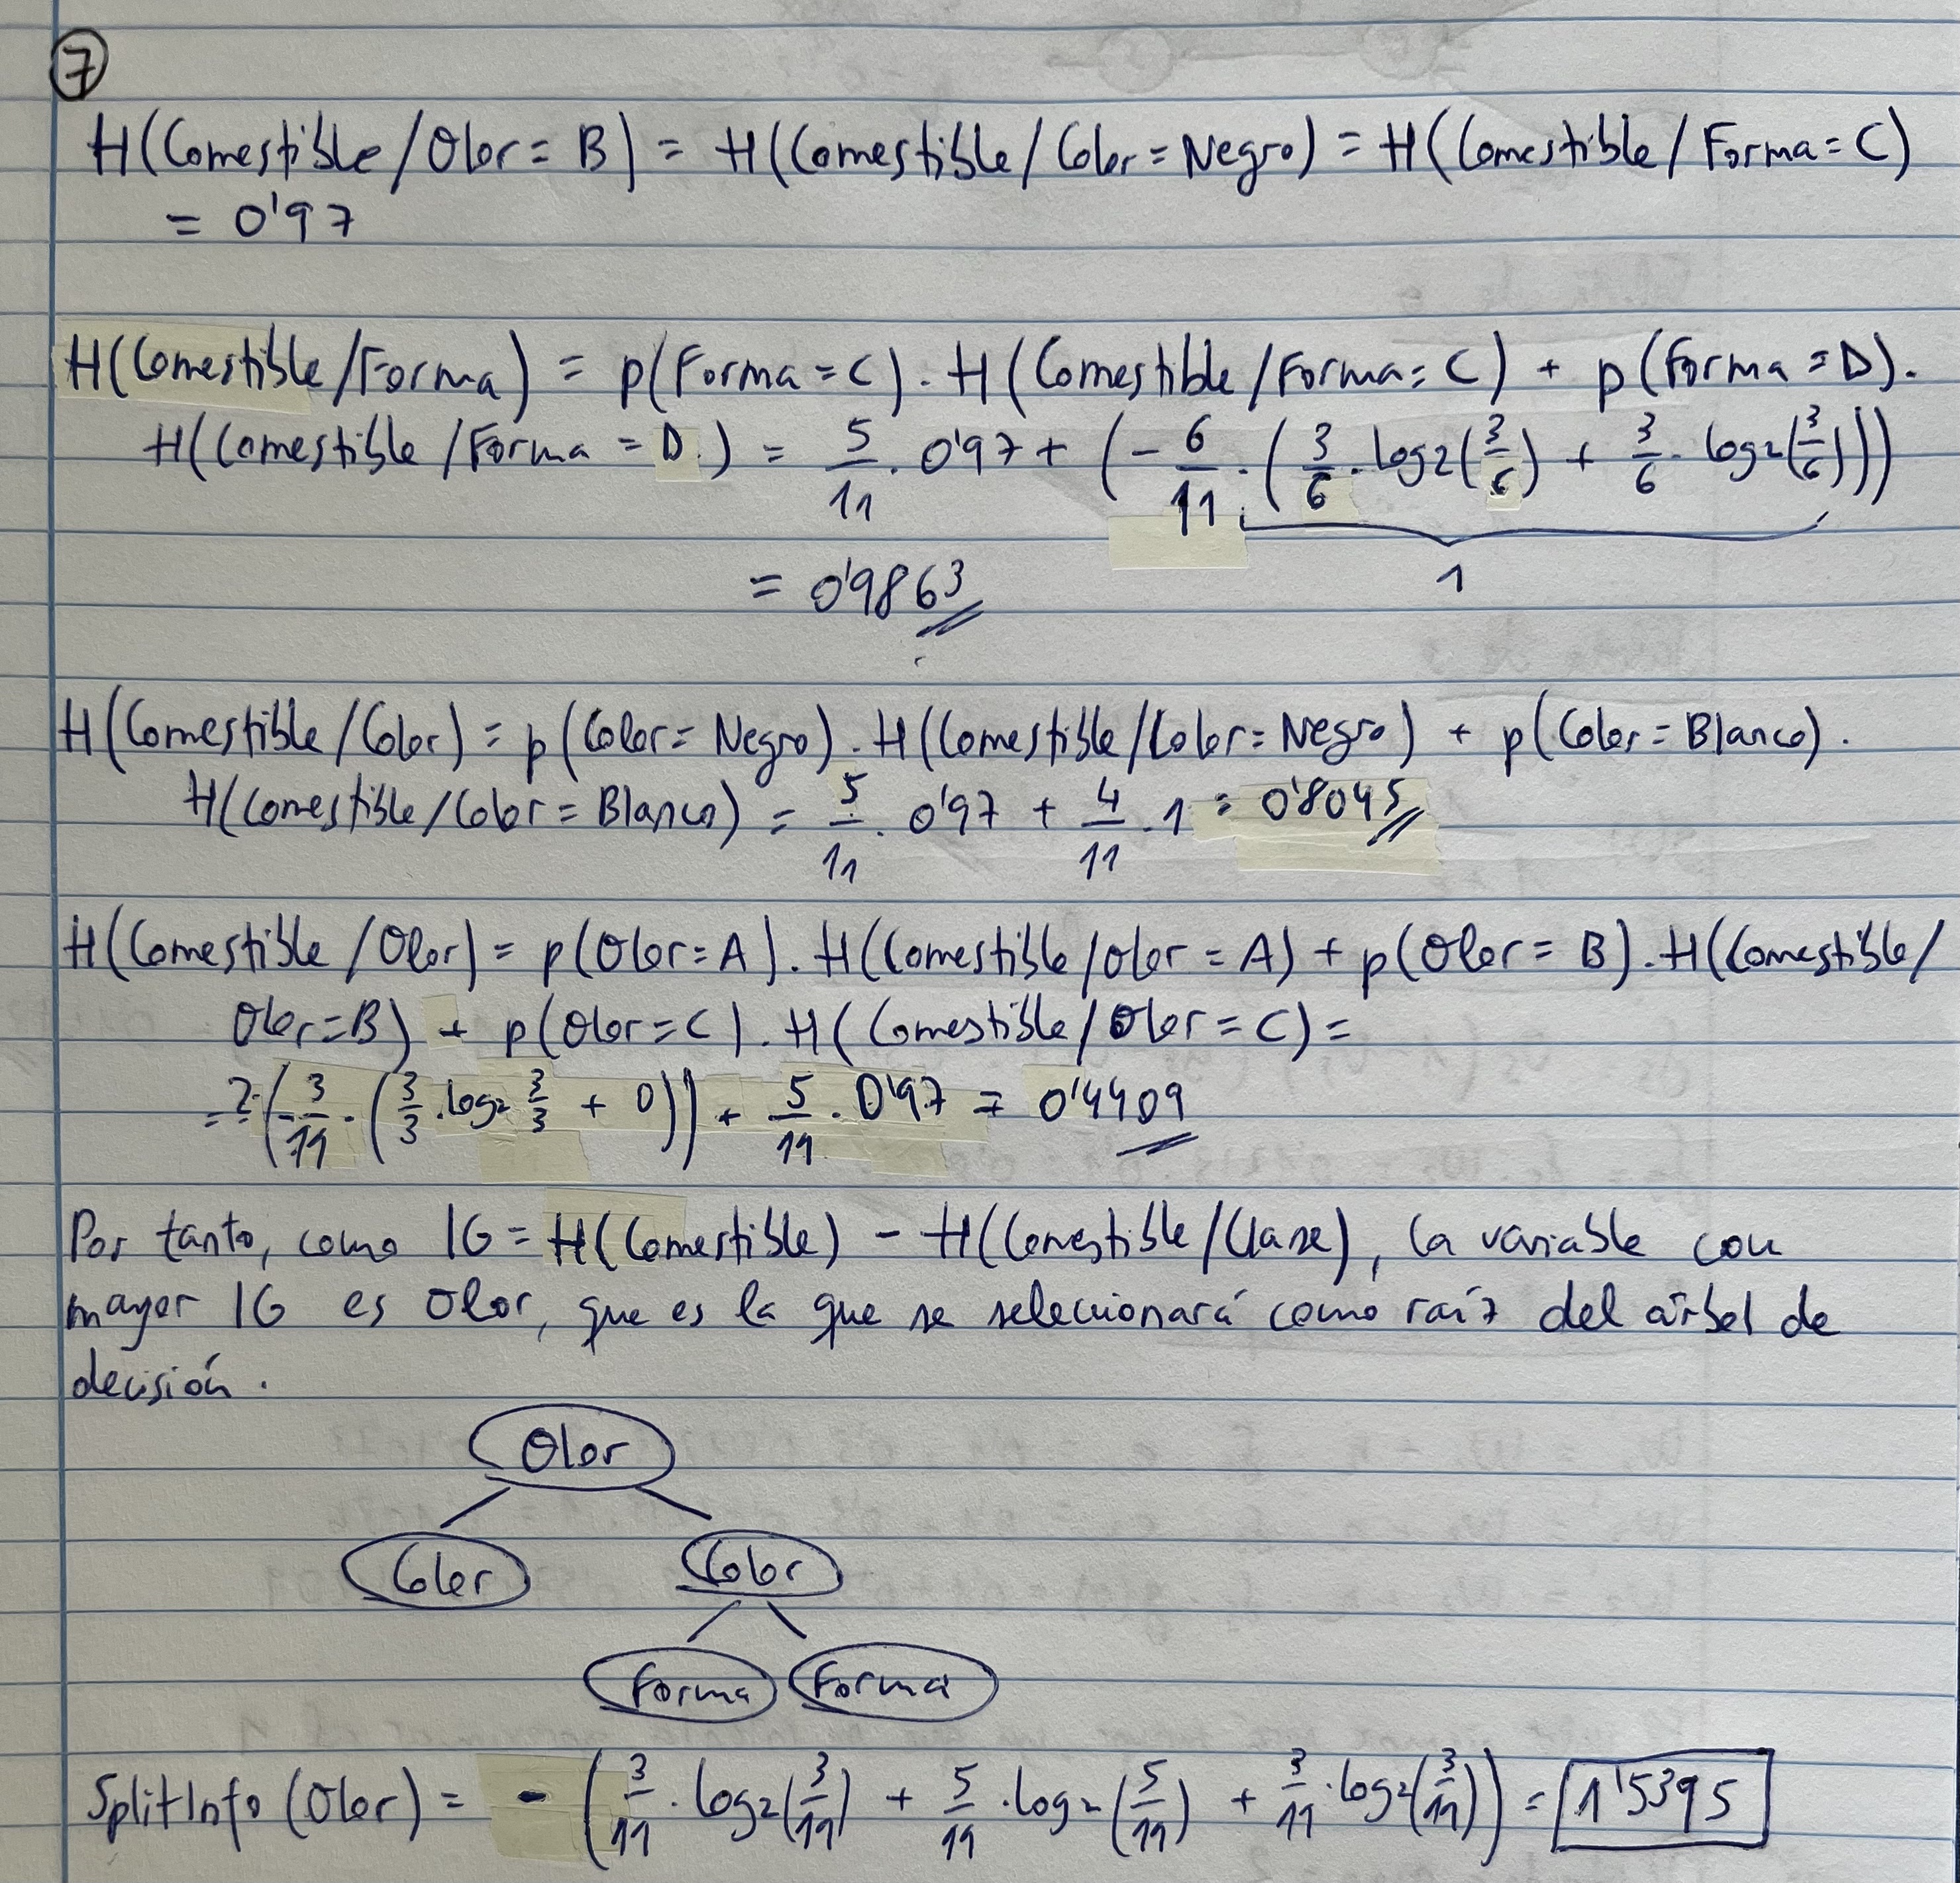 7
H(Comestible/Olor = B) = H(Comestible/Color = Negro) = H(Comestible/Forma = C)
= 0'97
H(Comestible/Forma) = p(Forma = C) · H(Comestible/Forma = C) + p(Forma = D) ·
H(Comestible/Forma = D) = 5/11 · 0'97 + (- 6/11 · (3/6 · log2(3/6) + 3/6 · log2(3/6)))
1
= 0'9863
H(Comestible/Color) = p(Color = Negro) · H(Comestible/Color = Negro) + p(Color = Blanco) ·
H(Comestible/Color = Blanco) = 5/11 · 0'97 + 4/11 · 1 = 0'8045
H(Comestible/Olor) = p(Olor = A) · H(Comestible/Olor = A) + p(Olor = B) · H(Comestible/
Olor = B) + p(Olor = C) · H(Comestible/Olor = C) =
= 2 · (- 3/11 · (3/3 · log2 3/3 + 0)) + 5/11 · 0'97 = 0'4409
Por tanto, como IG = H(Comestible) - H(Comestible/Clase), la variable con
mayor IG es Olor, que es la que se seleccionará como raíz del árbol de
decisión.
Olor
Color Color
Forma Forma
SplitInfo(Olor) = - (3/11 · log2(3/11) + 5/11 · log2(5/11) + 3/11 · log2(3/11)) = 1'5395